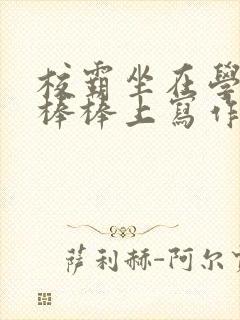 校霸坐在學
棒棒上寫作
萨利赫-阿尔